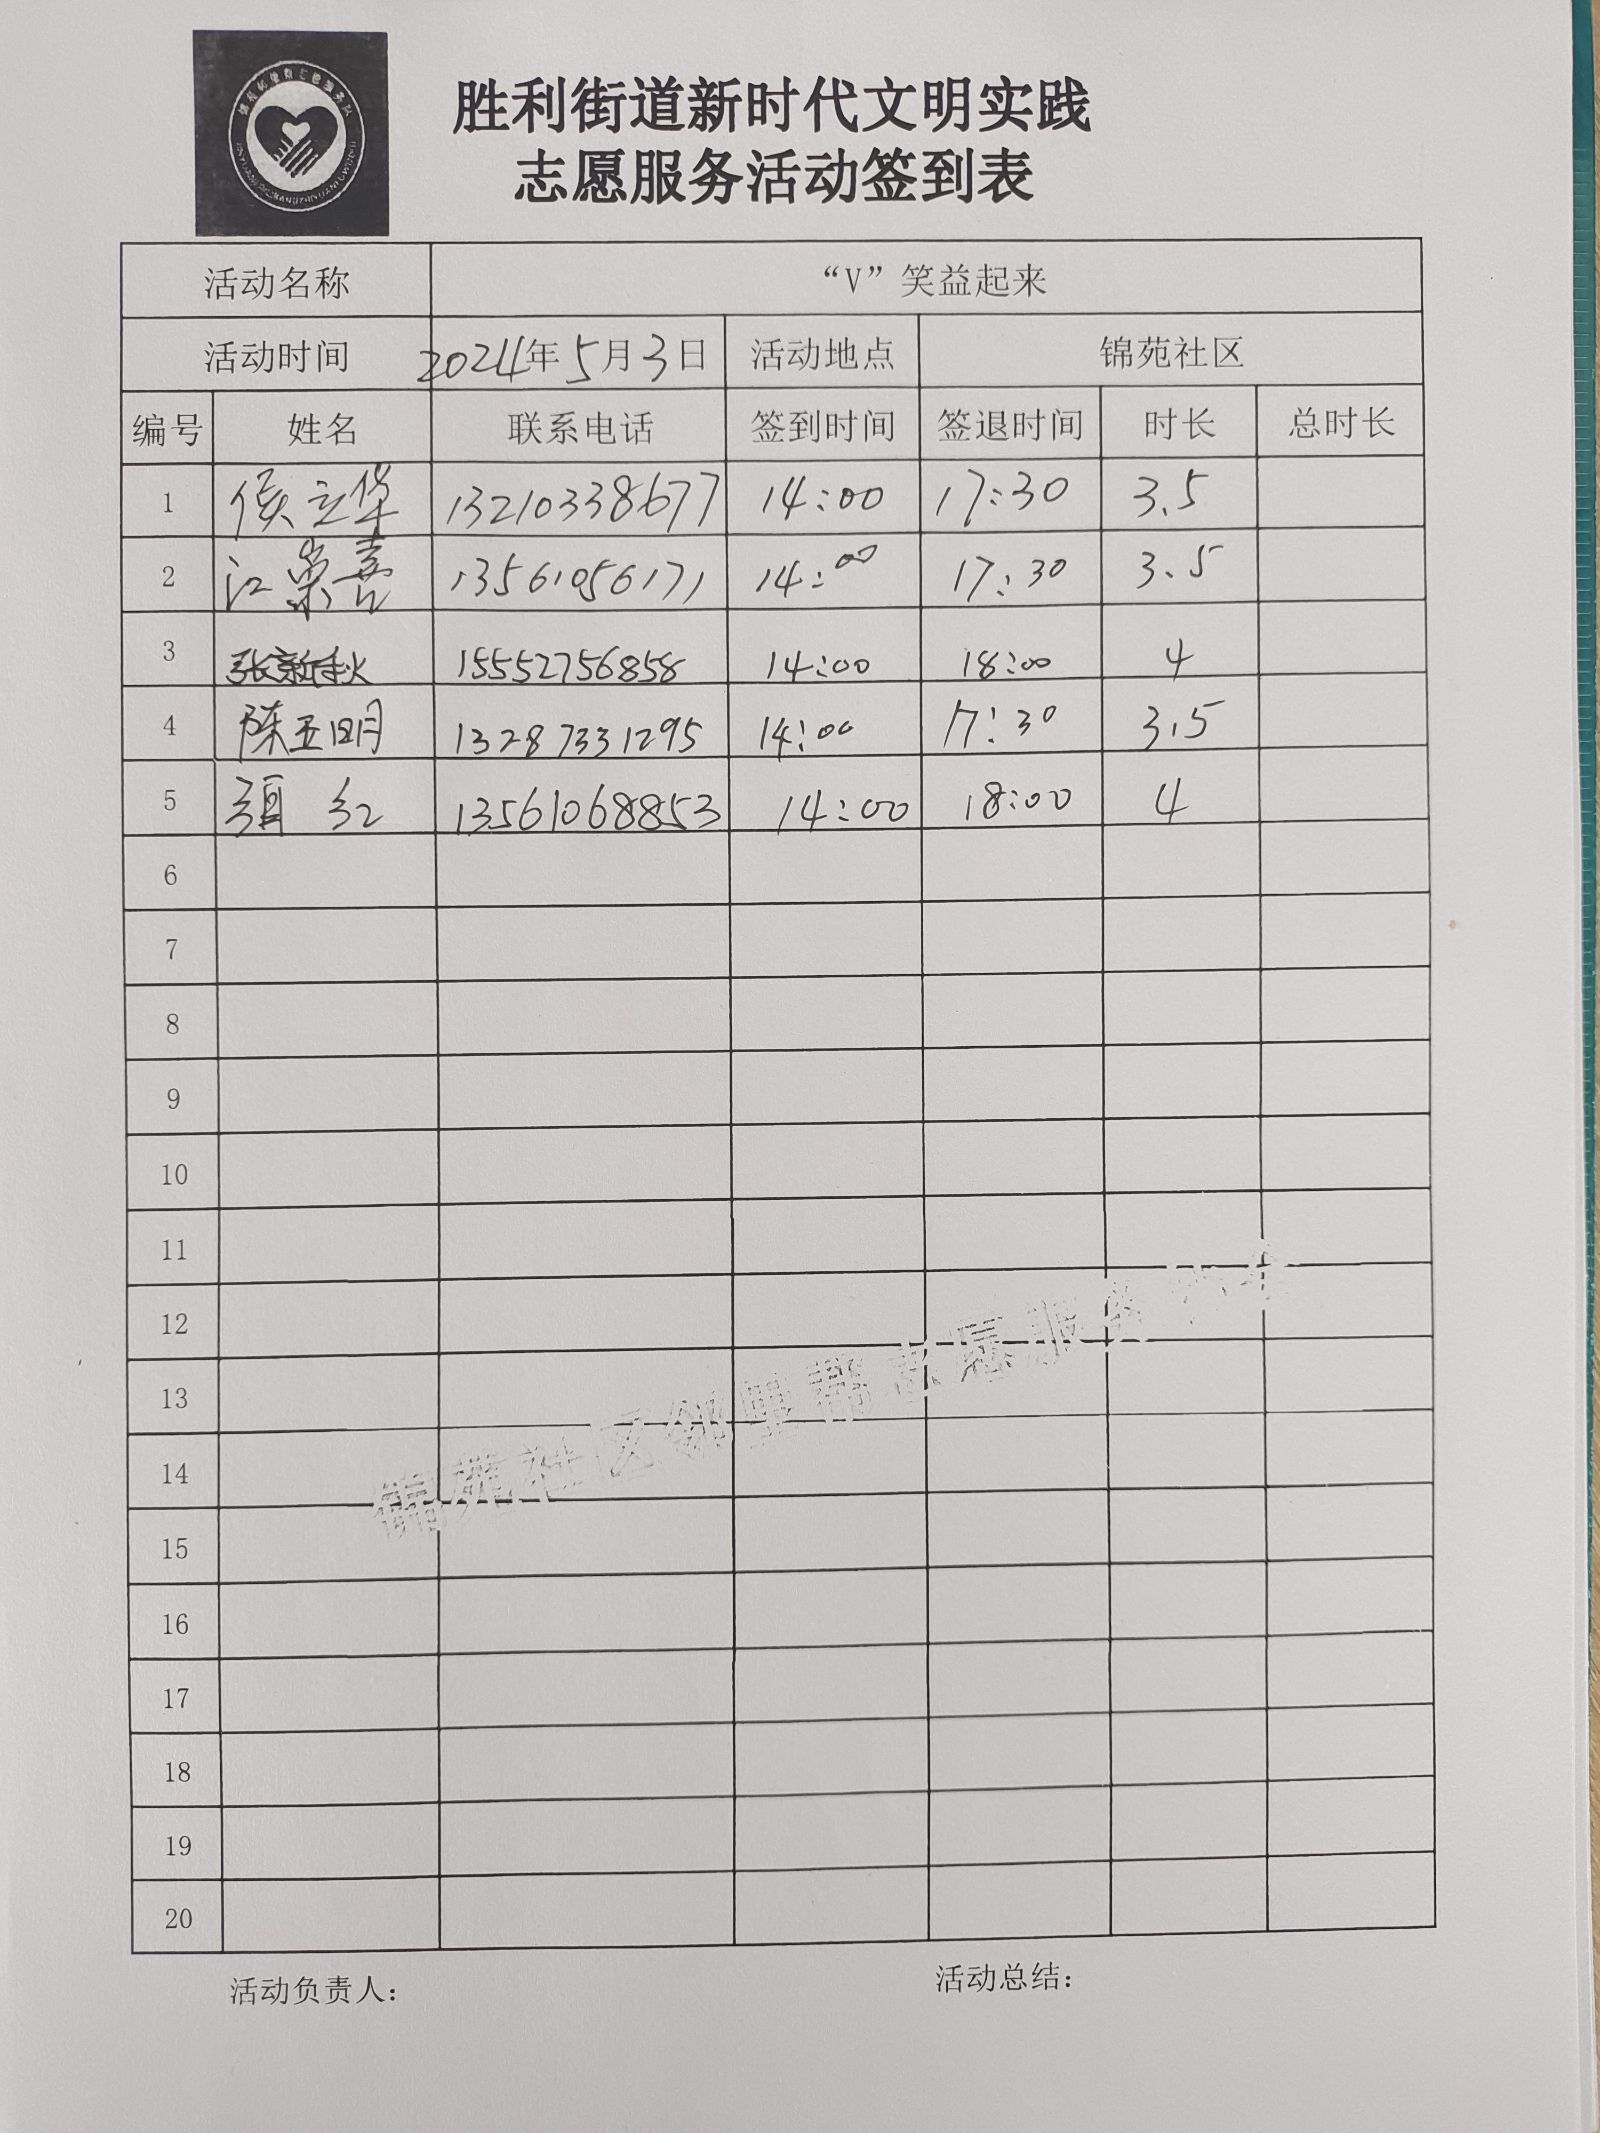 胜利街道新时代文明实践
志愿服务活动签到表
活动名称 “V”笑益起来
活动时间 2024年5月3日 活动地点 锦苑社区
编号 姓名 联系电话 签到时间 签退时间 时长 总时长
1 侯立华 13210338677 14:00 17:30 3.5
2 江荣喜 13561056171 14:00 17:30 3.5
3 张新秋 15552756858 14:00 18:00 4
4 陈玉明 13287331295 14:00 17:30 3.5
5 红 13561068853 14:00 18:00 4
6
7
8
9
10
11
12
13
14
15
16
17
18
19
20
锦苑社区邻里帮志愿服务协会
活动负责人：
活动总结：